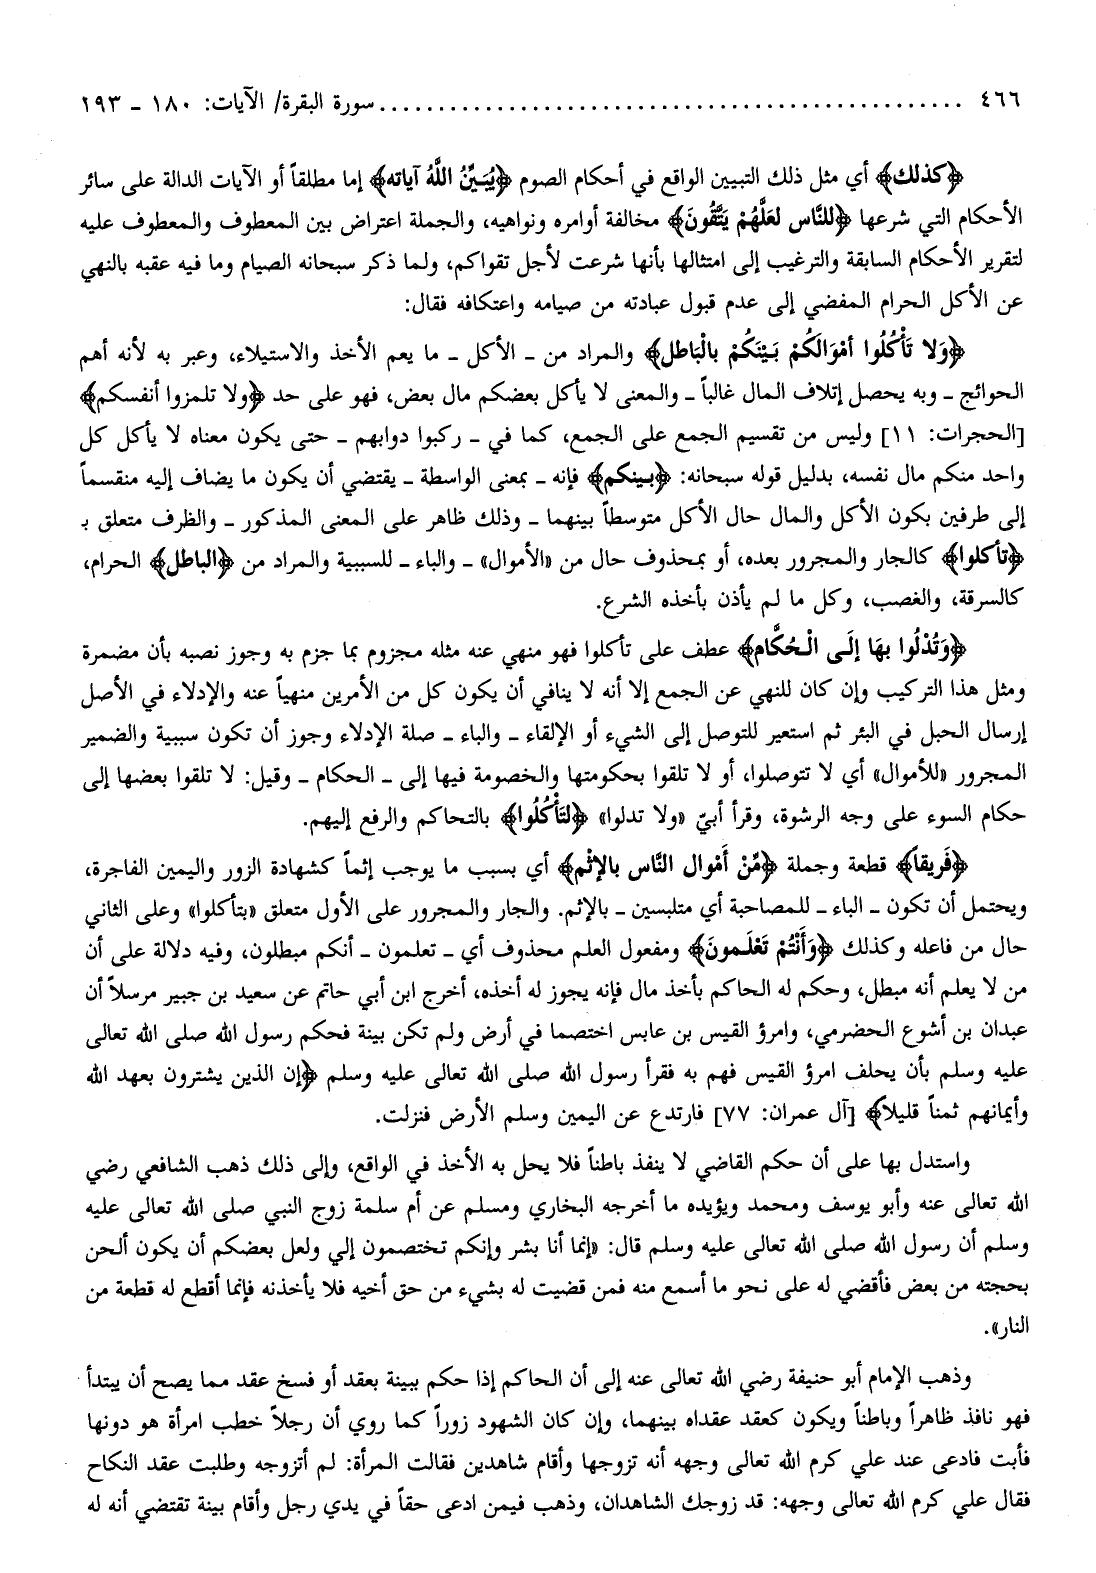 ٤٦٦ ................................................ سورة البقرة/ الآيات: ١٨٠ ـ ١٩٣
﴿كذلك﴾ أي مثل ذلك التبيين الواقع في أحكام الصوم ﴿يُبَيِّنُ اللَّهُ آياته﴾ إما مطلقاً أو الآيات الدالة على سائر
الأحكام التي شرعها ﴿للنَّاس لعَلَّهُمْ يَتَّقُونَ﴾ مخالفة أوامره ونواهيه، والجملة اعتراض بين المعطوف والمعطوف عليه
لتقرير الأحكام السابقة والترغيب إلى امتثالها بأنها شرعت لأجل تقواكم، ولما ذكر سبحانه الصيام وما فيه عقبه بالنهي
عن الأكل الحرام المفضي إلى عدم قبول عبادته من صيامه واعتكافه فقال:
﴿وَلا تَأْكُلُوا أمْوَالَكُمْ بَيْنَكُمْ بالْبَاطل﴾ والمراد من ـ الأكل ـ ما يعم الأخذ والاستيلاء، وعبر به لأنه أهم
الحوائج ـ وبه يحصل إتلاف المال غالباً ـ والمعنى لا يأكل بعضكم مال بعض، فهو على حد ﴿ولا تلمزوا أنفسكم﴾
[الحجرات: ١١] وليس من تقسيم الجمع على الجمع، كما في ـ ركبوا دوابهم ـ حتى يكون معناه لا يأكل كل
واحد منكم مال نفسه، بدليل قوله سبحانه: ﴿بينكم﴾ فإنه ـ بمعنى الواسطة ـ يقتضي أن يكون ما يضاف إليه منقسماً
إلى طرفين بكون الأكل والمال حال الأكل متوسطاً بينهما ـ وذلك ظاهر على المعنى المذكور ـ والظرف متعلق بـ
﴿تأكلوا﴾ كالجار والمجرور بعده، أو بمحذوف حال من «الأموال» ـ والباء ـ للسببية والمراد من ﴿الباطل﴾ الحرام،
كالسرقة، والغصب، وكل ما لم يأذن بأخذه الشرع.
﴿وَتُدْلُوا بهَا إلَى الْحُكَّام﴾ عطف على تأكلوا فهو منهي عنه مثله مجزوم بما جزم به وجوز نصبه بأن مضمرة
ومثل هذا التركيب وإن كان للنهي عن الجمع إلا أنه لا ينافي أن يكون كل من الأمرين منهياً عنه والإدلاء في الأصل
إرسال الحبل في البئر ثم استعير للتوصل إلى الشيء أو الإلقاء ـ والباء ـ صلة الإدلاء وجوز أن تكون سببية والضمير
المجرور «للأموال» أي لا تتوصلوا، أو لا تلقوا بحكومتها والخصومة فيها إلى ـ الحكام ـ وقيل: لا تلقوا بعضها إلى
حكام السوء على وجه الرشوة، وقرأ أبيّ «ولا تدلوا» ﴿لتَأْكُلُوا﴾ بالتحاكم والرفع إليهم.
﴿فَريقاً﴾ قطعة وجملة ﴿مِّنْ أَمْوال النَّاس بالإثْم﴾ أي بسبب ما يوجب إثماً كشهادة الزور واليمين الفاجرة،
ويحتمل أن تكون ـ الباء ـ للمصاحبة أي متلبسين ـ بالإثم. والجار والمجرور على الأول متعلق «بتأكلوا» وعلى الثاني
حال من فاعله وكذلك ﴿وَأَنْتُمْ تَعْلَمونَ﴾ ومفعول العلم محذوف أي ـ تعلمون ـ أنكم مبطلون، وفيه دلالة على أن
من لا يعلم أنه مبطل، وحكم له الحاكم بأخذ مال فإنه يجوز له أخذه، أخرج ابن أبي حاتم عن سعيد بن جبير مرسلاً أن
عبدان بن أشوع الحضرمي، وامرؤ القيس بن عابس اختصما في أرض ولم تكن بينة فحكم رسول الله صلى الله تعالى
عليه وسلم بأن يحلف امرؤ القيس فهم به فقرأ رسول الله صلى الله تعالى عليه وسلم ﴿إن الذين يشترون بعهد الله
وأيمانهم ثمناً قليلاً﴾ [آل عمران: ٧٧] فارتدع عن اليمين وسلم الأرض فنزلت.
واستدل بها على أن حكم القاضي لا ينفذ باطناً فلا يحل به الأخذ في الواقع، وإلى ذلك ذهب الشافعي رضي
الله تعالى عنه وأبو يوسف ومحمد ويؤيده ما أخرجه البخاري ومسلم عن أم سلمة زوج النبي صلى الله تعالى عليه
وسلم أن رسول الله صلى الله تعالى عليه وسلم قال: «إنما أنا بشر وإنكم تختصمون إلي ولعل بعضكم أن يكون ألحن
بحجته من بعض فأقضي له على نحو ما أسمع منه فمن قضيت له بشيء من حق أخيه فلا يأخذنه فإنما أقطع له قطعة من
النار».
وذهب الإمام أبو حنيفة رضي الله تعالى عنه إلى أن الحاكم إذا حكم ببينة بعقد أو فسخ عقد مما يصح أن يبتدأ
فهو نافذ ظاهراً وباطناً ويكون كعقد عقداه بينهما، وإن كان الشهود زوراً كما روي أن رجلاً خطب امرأة هو دونها
فأبت فادعى عند علي كرم الله تعالى وجهه أنه تزوجها وأقام شاهدين فقالت المرأة: لم أتزوجه وطلبت عقد النكاح
فقال علي كرم الله تعالى وجهه: قد زوجك الشاهدان، وذهب فيمن ادعى حقاً في يدي رجل وأقام بينة تقتضي أنه له